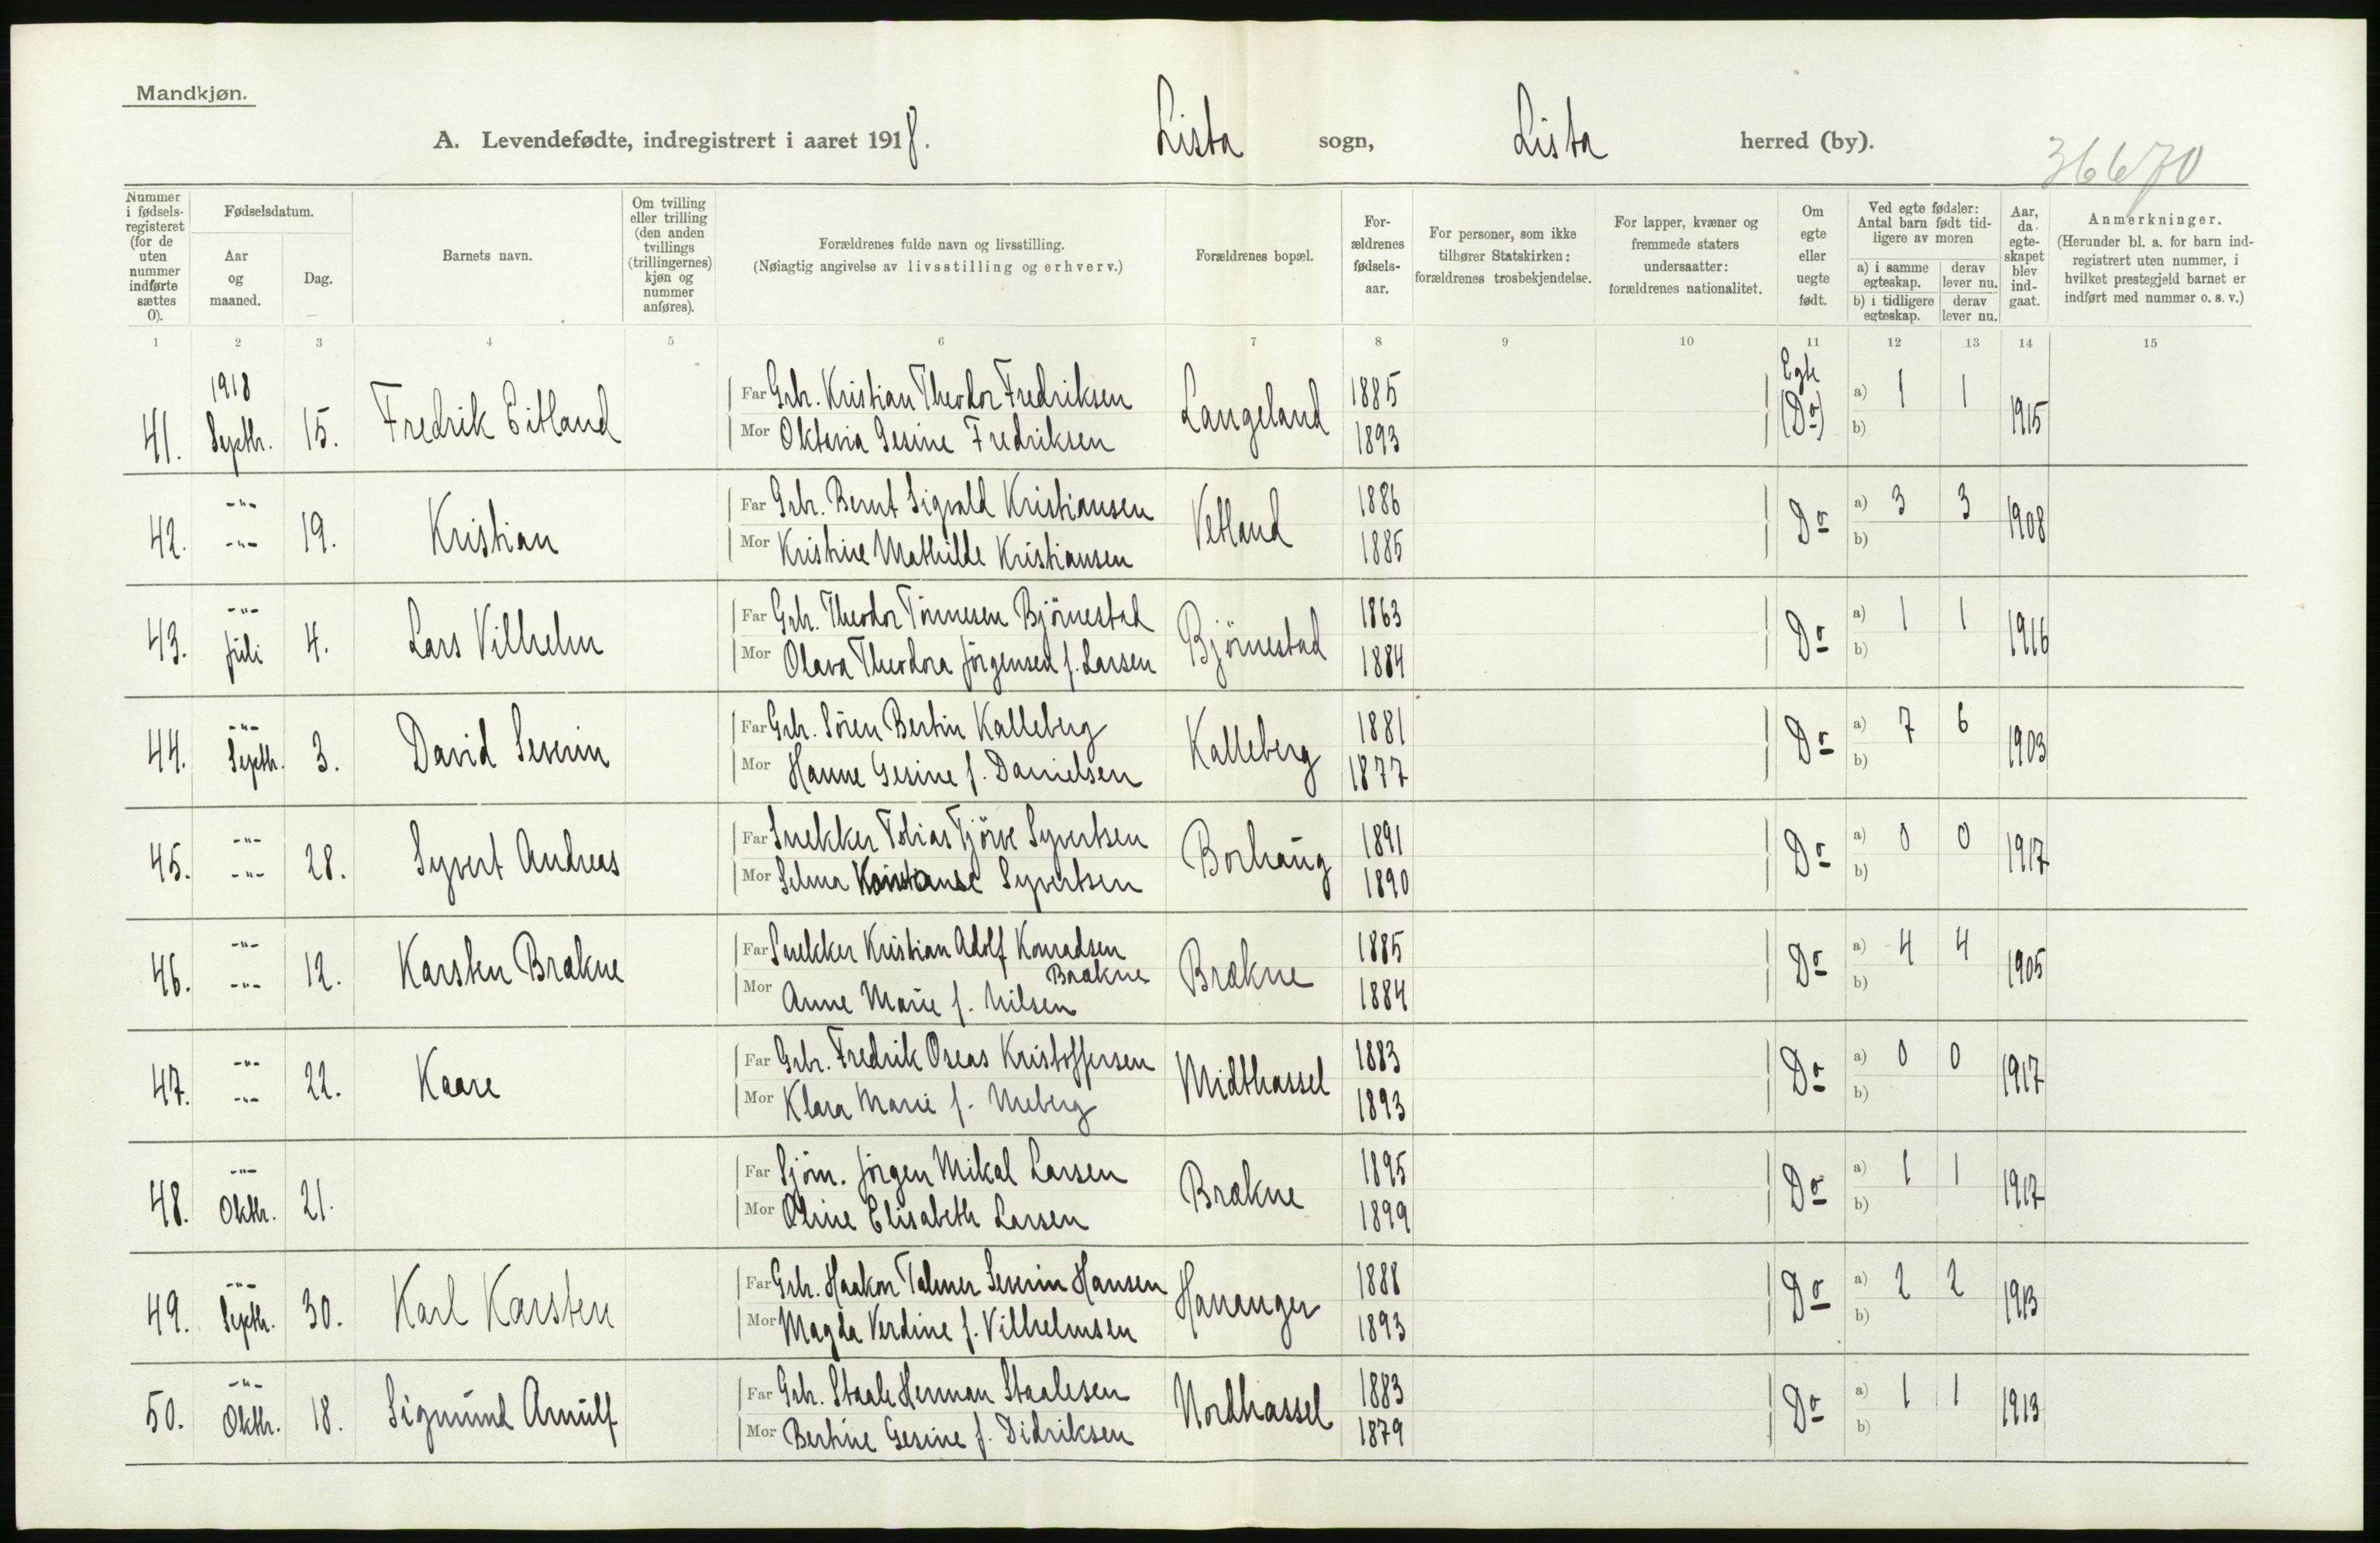 Mandkjøn.
A. Levendefødte, indregistrert i aaret 1918. Lista sogn, Lista herred (by).
36670
Nummer i fødsels-registeret (for de uten nummer indførte sættes 0).
Fødselsdatum.
Aar og maaned.
Dag.
Barnets navn.
Om tvilling eller trilling (den anden tvillings (trillingernes) kjøn og nummer anføres).
Forældrenes fulde navn og livsstilling.
(Nøiagtig angivelse av livsstilling og erhverv.)
Forældrenes bopæl.
For-ældrenes fødsels-aar.
For personer, som ikke tilhører Statskirken: forældrenes trosbekjendelse.
For lapper, kvæner og fremmede staters undersaatter: forældrenes nationalitet.
Om egte eller uegte født.
Ved egte fødsler: Antal barn født tid-ligere av moren
a) i samme egteskap. derav lever nu.
b) i tidligere egteskap. derav lever nu.
Aar, da egte-skapet blev ind-gaat.
Anmerkninger.
(Herunder bl. a. for barn ind-registrert uten nummer, i hvilket prestegjeld barnet er indført med nummer o. s. v.)
1 2 3 4 5 6 7 8 9 10 11 12 13 14 15
41. 1918 Septbr. 15. Fredrik Eitland Far Grbr. Kristian Theodor Fredriksen Langeland 1885 Egte (Do) a) 1 1 1915
Mor Oktavia Gesine Fredriksen 1893 b)
42. -"- -"- 19. Kristian Far Grbr. Bernt Sigvald Kristiansen Vetland 1886 Do a) 3 3 1908
Mor Kristine Mathilde Kristiansen 1885 b)
43. -"- Juli 4. Lars Vilhelm Far Grbr. Theodor Tönnesen Björnestad Björnestad 1863 Do a) 1 1 1916
Mor Olava Theodora Jörgensen f. Larsen 1884 b)
44. -"- Septbr. 3. David Severin Far Grbr. Sören Bertin Kalleberg Kalleberg 1881 Do a) 7 6 1903
Mor Hanne Gesine f. Danielsen 1877 b)
45. -"- -"- 28. Syvert Andreas Far Snekker Tobias Tjörve Syvertsen Borhaug 1891 Do a) 0 0 1917
Mor Selma Konstanse Syvertsen 1890 b)
46. -"- -"- 12. Karsten Brækne Far Snekker Kristian Adolf Konradsen Brækne Brækne 1885 Do a) 4 4 1905
Mor Anne Marie f. Nilsen 1884 b)
47. -"- -"- 22. Kaare Far Grbr. Fredrik Oseas Kristoffersen Midthassel 1883 Do a) 0 0 1917
Mor Klara Marie f. Meberg 1893 b)
48. -"- Oktbr. 21. Far Sjöm. Jörgen Mikal Larsen Brækne 1895 Do a) 1 1 1917
Mor Oline Elisabeth Larsen 1899 b)
49. -"- Septbr. 30. Karl Karsten Far Grbr. Haakon Talmer Severin Hansen Hananger 1888 Do a) 2 2 1913
Mor Magda Verdine f. Vilhelmsen 1893 b)
50. -"- Oktbr. 18. Sigmund Arnulf Far Grbr. Staale Herman Staalesen Nordhassel 1883 Do a) 1 1 1913
Mor Bertine Gesine f. Didriksen 1879 b)